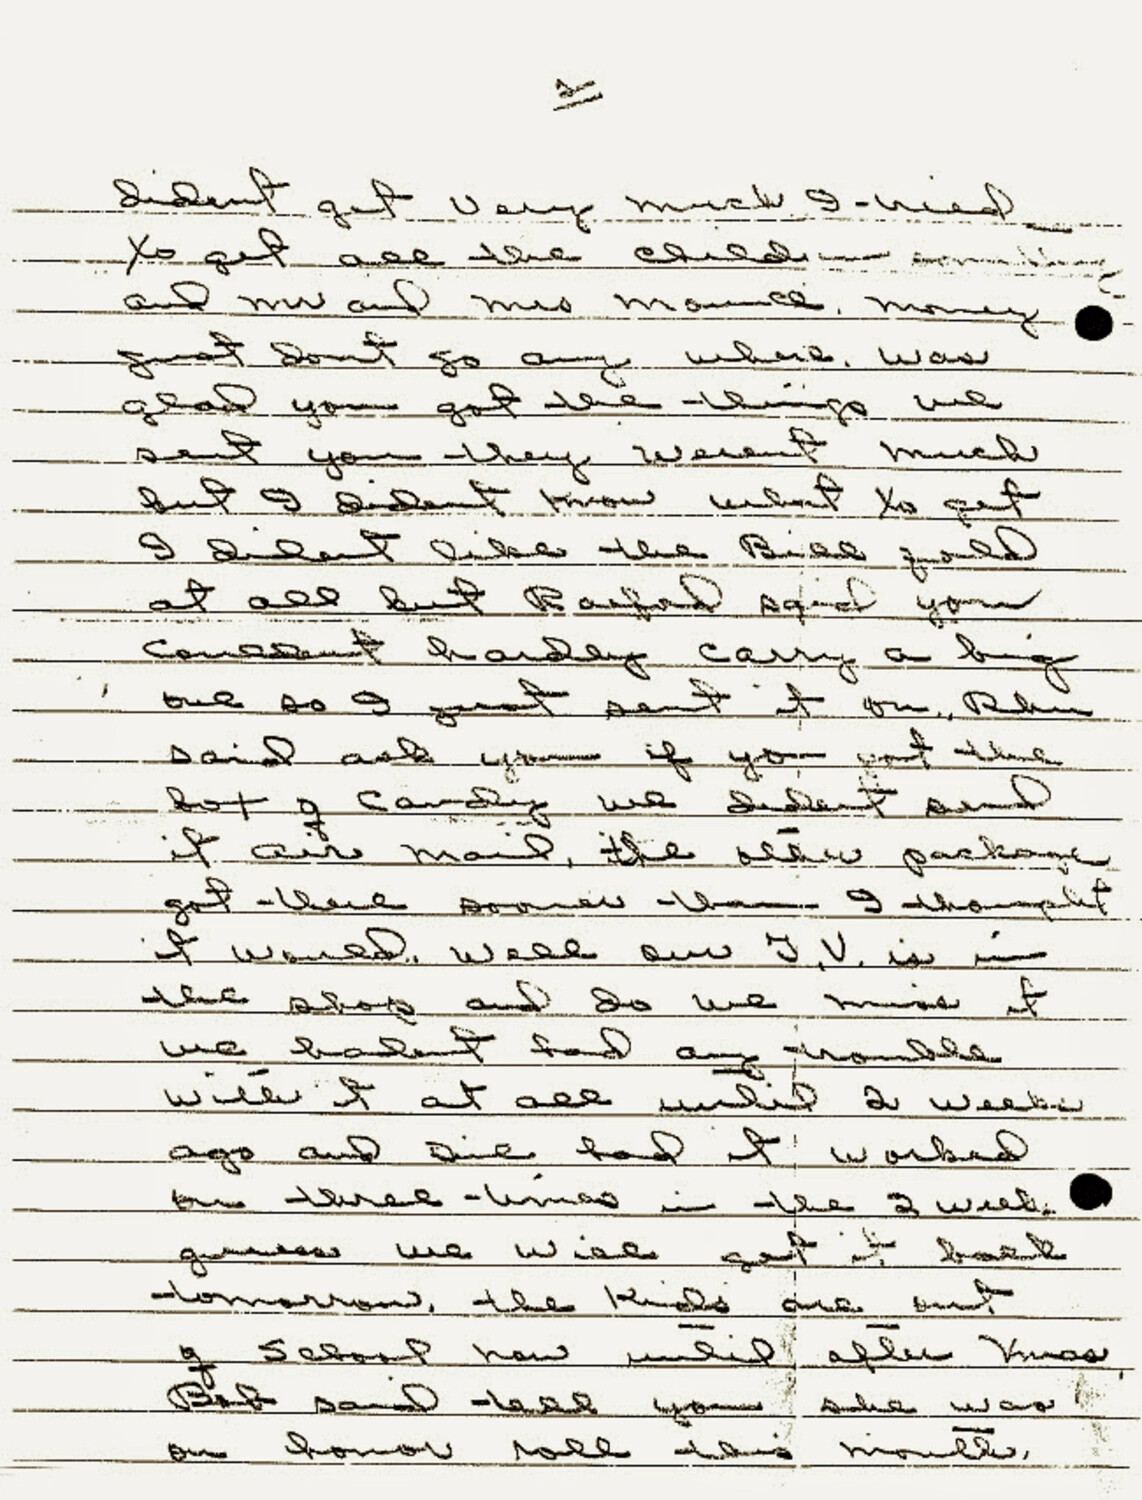 2
dident get very much I tried
to get all the children something
and mr and mrs money
just don't go any where. was
glad you got the things we
sent you they werent much
but I dident know what to get
I dident like the Bill fold
at all but said you
couldent hardly carry a big
one so I just sent it on,
said ask you if you got the
box of candy we dident send
it air mail, the other package
got there sooner than I thought
it would. Well our T.V. is in
the shop and do we miss it
we hadent had any trouble
with it at all until 2 weeks
ago and I've had it worked
on three times in the 2 week.
guess we will get it back
tomorrow, the Kids are out
of School now until after Xmas,
said tell you she was
on honor roll this month.